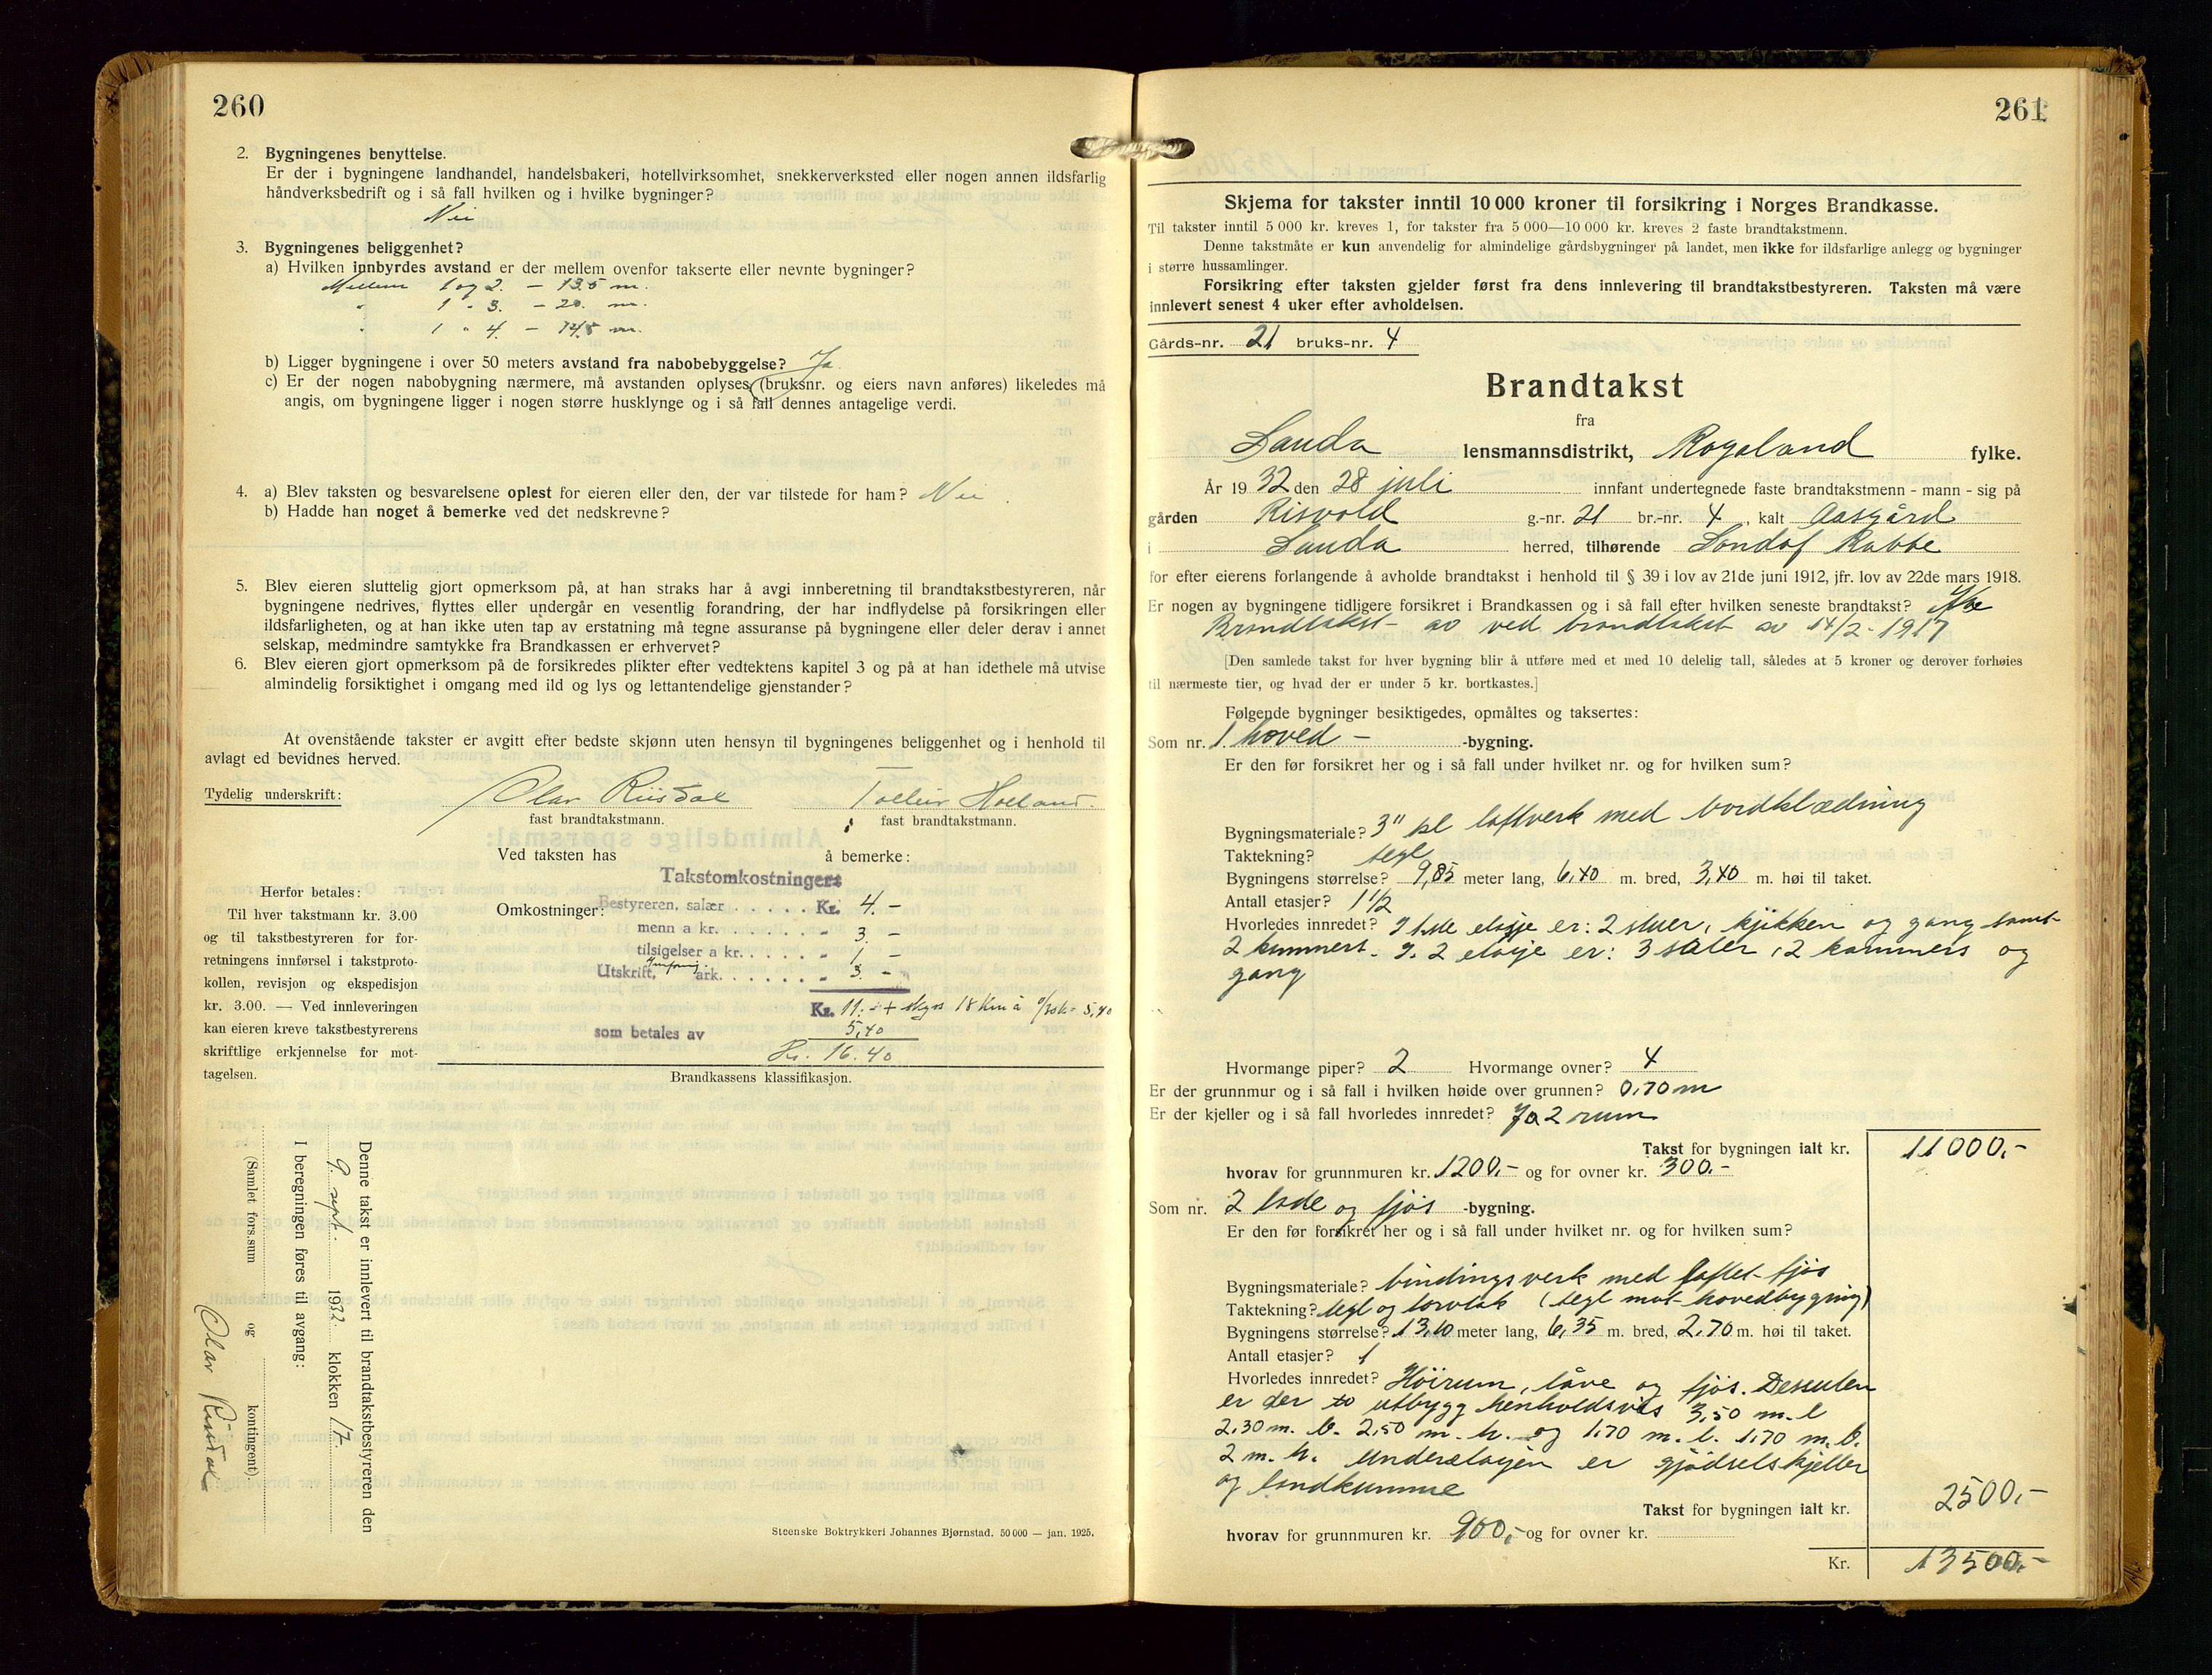 260
2. Bygningenes benyttelse.
Er der i bygningene landhandel, handelsbakeri, hotellvirksomhet, snekkerverksted eller nogen annen ildsfarlig
håndverksbedrift og i så fall hvilken og i hvilke bygninger?
Nei
3. Bygningenes beliggenhet?
a) Hvilken innbyrdes avstand er der mellem ovenfor takserte eller nevnte bygninger?
Mellem 1 og 2. — 13.5 m.
" 1 " 3. — 20. m.
" 1 " 4. — m.
b) Ligger bygningene i over 50 meters avstand fra nabobebyggelse? Ja
c) Er der nogen nabobygning nærmere, må avstanden oplyses (bruksnr. og eiers navn anføres) likeledes må
angis, om bygningene ligger i nogen større husklynge og i så fall dennes antagelige verdi.
4. a) Blev taksten og besvarelsene oplest for eieren eller den, der var tilstede for ham? Nei
b) Hadde han noget å bemerke ved det nedskrevne?
5. Blev eieren sluttelig gjort opmerksom på, at han straks har å avgi innberetning til brandtakstbestyreren, når
bygningene nedrives, flyttes eller undergår en vesentlig forandring, der har indflydelse på forsikringen eller
ildsfarligheten, og at han ikke uten tap av erstatning må tegne assuranse på bygningene eller deler derav i annet
selskap, medmindre samtykke fra Brandkassen er erhvervet?
6. Blev eieren gjort opmerksom på de forsikredes plikter efter vedtektens kapitel 3 og på at han idethele må utvise
almindelig forsiktighet i omgang med ild og lys og lettantendelige gjenstander?
At ovenstående takster er avgitt efter bedste skjønn uten hensyn til bygningenes beliggenhet og i henhold til
avlagt ed bevidnes herved.
Tydelig underskrift: Olav Riisdal Tolleiv Høiland
fast brandtakstmann. fast brandtakstmann.
Ved taksten has å bemerke:
Takstomkostninger
Herfor betales:
Til hver takstmann kr. 3.00
og til takstbestyreren for for-
retningens innførsel i takstproto-
kollen, revisjon og ekspedisjon
kr. 3.00. — Ved innleveringen
kan eieren kreve takstbestyrerens
skriftlige erkjennelse for mot-
tagelsen.
Omkostninger: Bestyreren, salær . . . . . Kr. 4. -
menn a kr. . . . . . . - 3 -
tilsigelser a kr. . . . . - 1 -
Utskrift, ark. . . . . . - 3 -
Kr. 11.- + skyss 18 km à 5,40
som betales av 5,40
Kr. 16.40
Brandkassens klassifikasjon.
Denne takst er innlevert til brandtakstbestyreren den
9. sept. 1932 klokken 17
I beregningen føres til avgang:
(Samlet fors.sum og kontingent).
Olav Riisdal
Steenske Boktrykkeri Johannes Bjørnstad. 50 000 — jan. 1925.
261
Skjema for takster inntil 10 000 kroner til forsikring i Norges Brandkasse.
Til takster inntil 5 000 kr. kreves 1, for takster fra 5 000—10 000 kr. kreves 2 faste brandtakstmenn.
Denne takstmåte er kun anvendelig for almindelige gårdsbygninger på landet, men ikke for ildsfarlige anlegg og bygninger
i større hussamlinger.
Forsikring efter taksten gjelder først fra dens innlevering til brandtakstbestyreren. Taksten må være
innlevert senest 4 uker efter avholdelsen.
Gårds-nr. 21 bruks-nr. 4
Brandtakst
fra
Sauda lensmannsdistrikt, Rogaland fylke.
År 1932 den 28 juli innfant undertegnede faste brandtakstmenn - mann - sig på
gården Risvold g.-nr. 21 br.-nr. 4, kalt Aasgård
i Sauda herred, tilhørende Rabbe
for efter eierens forlangende å avholde brandtakst i henhold til § 39 i lov av 21de juni 1912, jfr. lov av 22de mars 1918.
Er nogen av bygningene tidligere forsikret i Brandkassen og i så fall efter hvilken seneste brandtakst?
Brandtakst av ved brandtakst av 14/2-1917
[Den samlede takst for hver bygning blir å utføre med et med 10 delelig tall, således at 5 kroner og derover forhøies
til nærmeste tier, og hvad der er under 5 kr. bortkastes.]
Følgende bygninger besiktigedes, opmåltes og taksertes:
Som nr. 1. hoved - -bygning.
Er den før forsikret her og i så fall under hvilket nr. og for hvilken sum?
Bygningsmateriale? 3" pl laftverk med bordklædning
Taktekning? tegl
Bygningens størrelse? 9,85 meter lang, 6,40 m. bred, 3,40 m. høi til taket.
Antall etasjer? 1 1/2
Hvorledes innredet? I 1ste etasje er: 2 stuer, kjøkken og gang samt
2 kammers. I 2 etasje er: 3 saler, 2 kammers og
gang
Hvormange piper? 2 Hvormange ovner? 4
Er der grunnmur og i så fall i hvilken høide over grunnen? 0,70 m
Er der kjeller og i så fall hvorledes innredet? Ja 2 rum
Takst for bygningen ialt kr. 11000,-
hvorav for grunnmuren kr. 1200,- og for ovner kr. 300.-
Som nr. 2 lade og fjøs -bygning.
Er den før forsikret her og i så fall under hvilket nr. og for hvilken sum?
Bygningsmateriale? bindingsverk med laftet fjøs
Taktekning? tegl og torvtak (tegl mot hovedbygning)
Bygningens størrelse? 13,10 meter lang, 6,35 m. bred, 2,70 m. høi til taket.
Antall etasjer? 1
Hvorledes innredet? Høirum, låve og fjøs. Dessuten
er der to utbygg henholdsvis 3,50 m. l
2,30 m. b. 2,50 m. h. og 1,70 m. l. 1,70 m. b.
2 m. h. Underetasjen er gjødselskjeller
og landkumme
Takst for bygningen ialt kr. 2500,-
hvorav for grunnmuren kr. 900,- og for ovner kr.
Kr. 13500,-